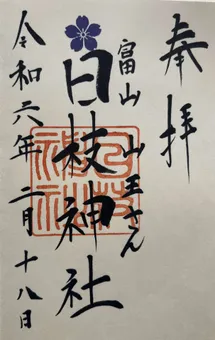 奉拝
富山
山王さん
日枝神社
日枝神社
令和六年二月十八日